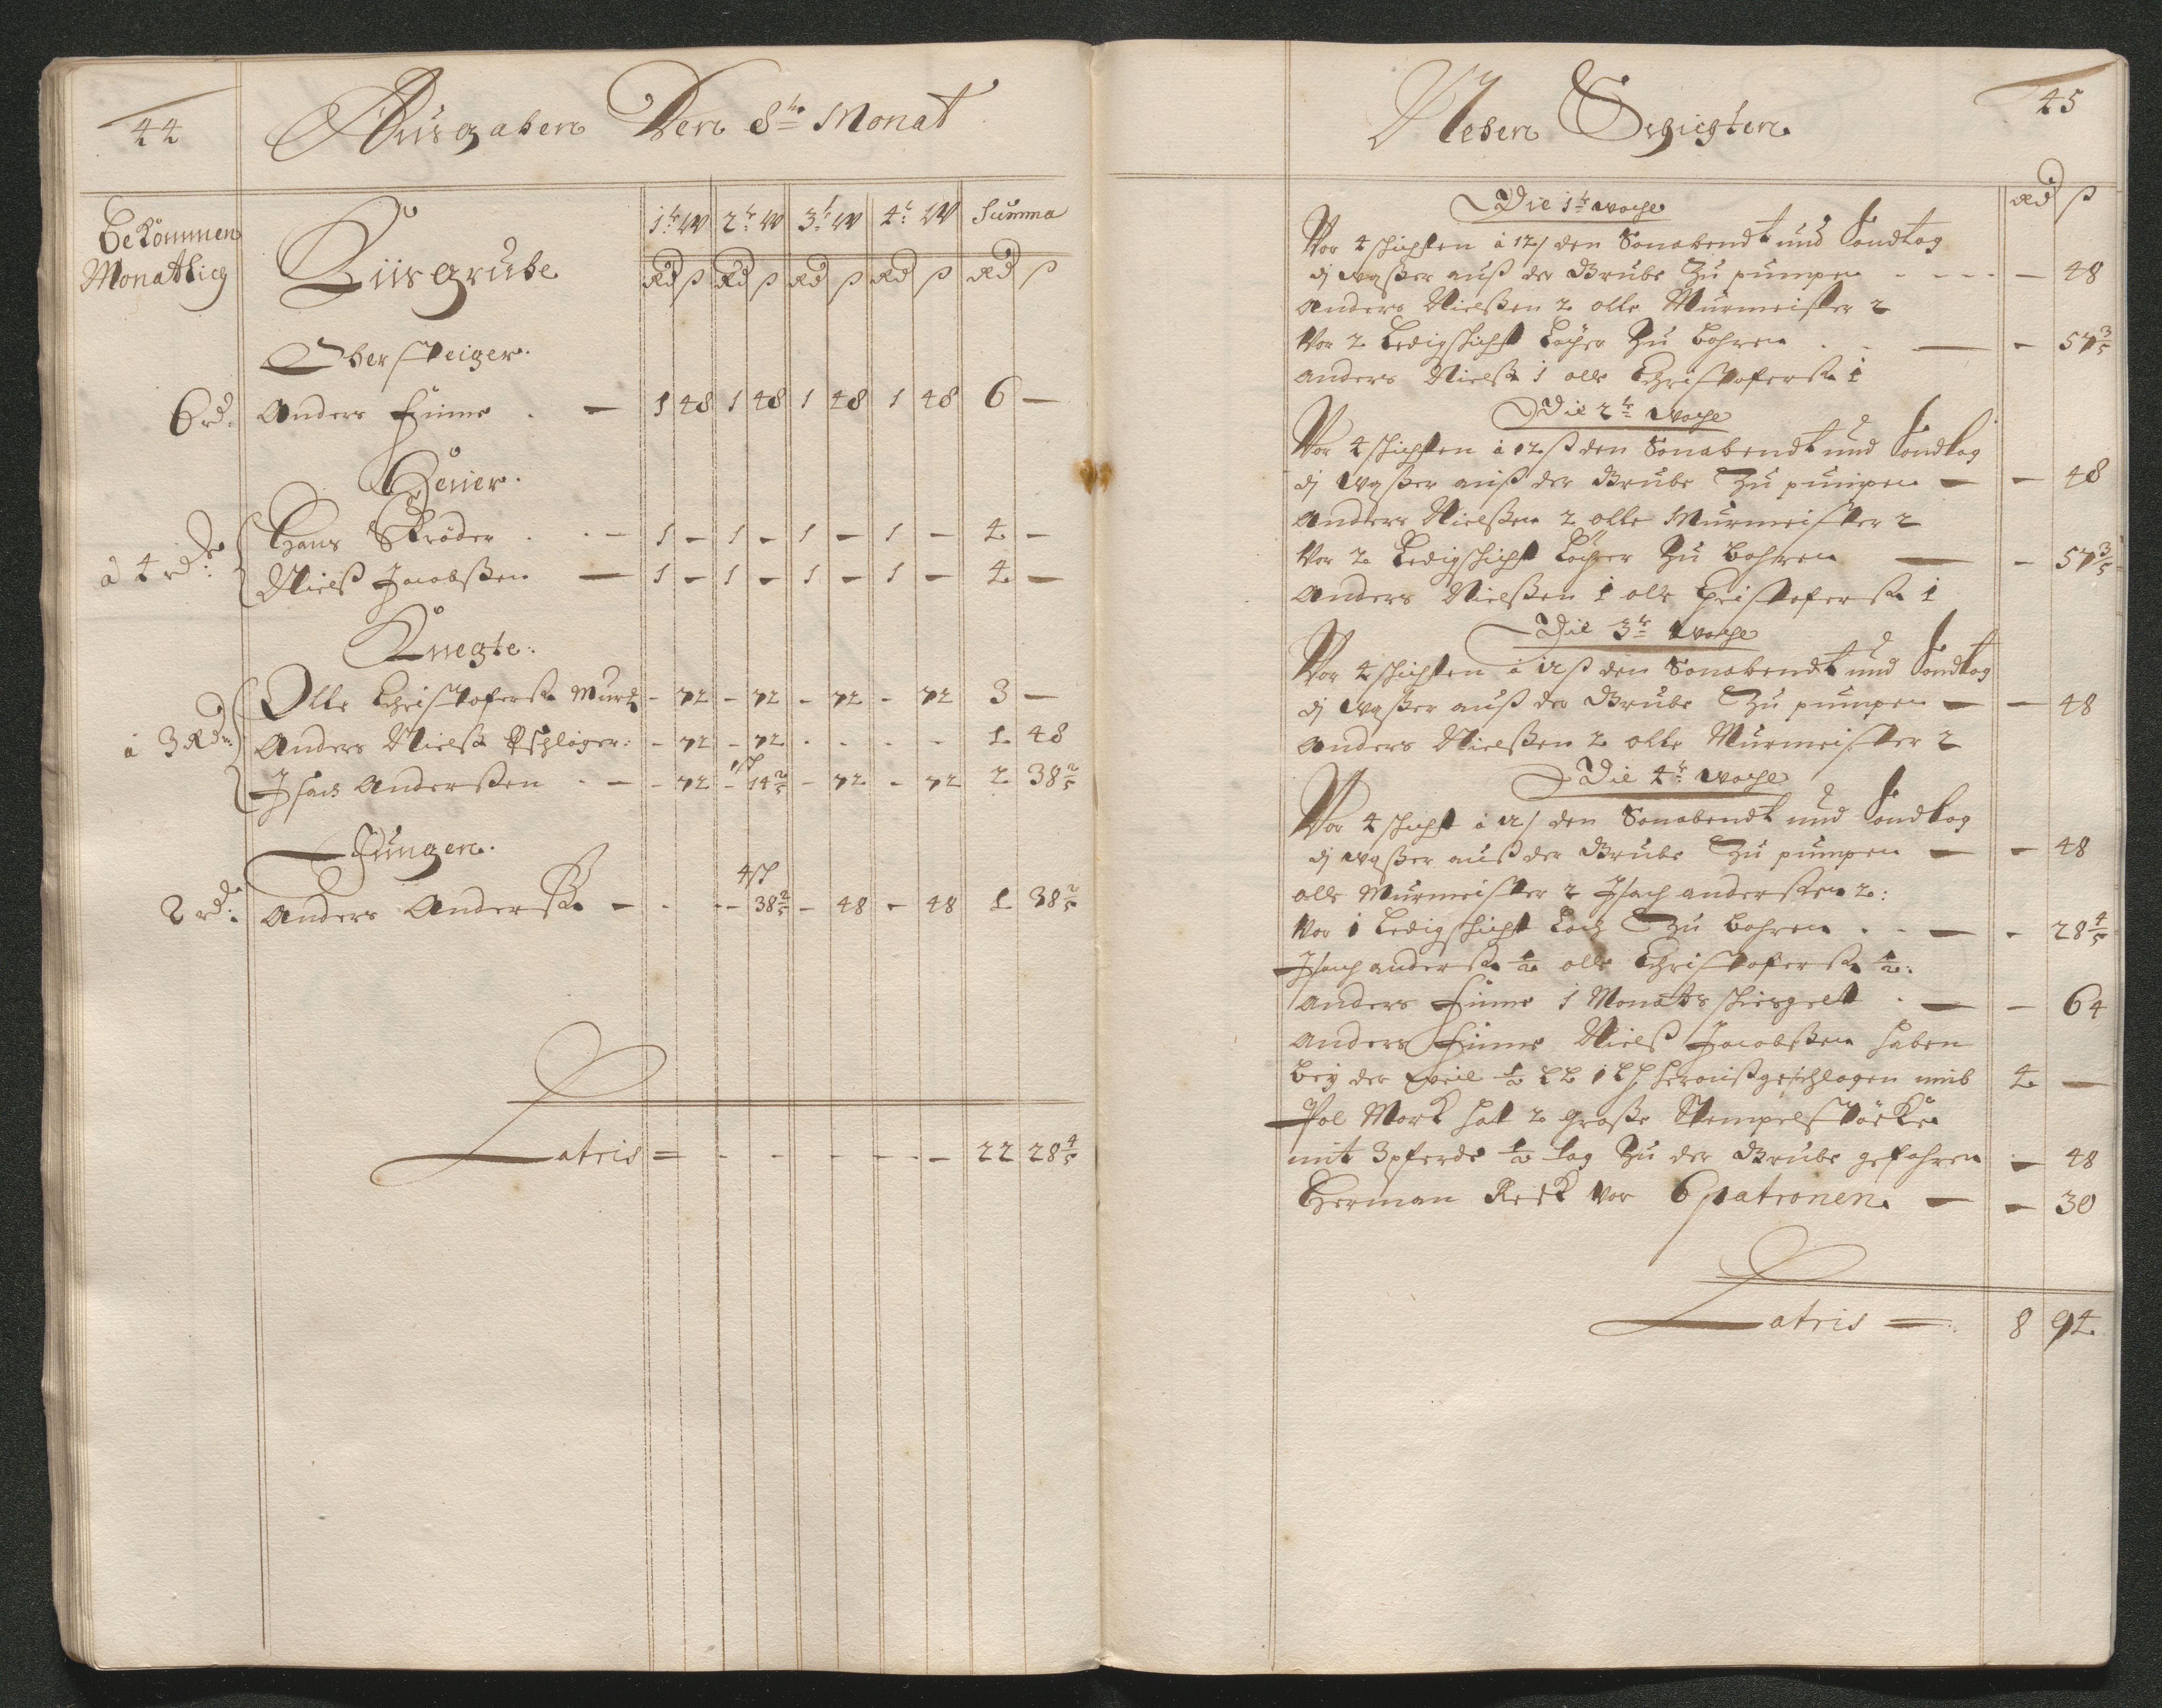 44
Ausgaben Den 8te Monat
Bekommen Monatlich
Giisgrube
1te W 2te W 3te W 4te W Summa
Rd ß Rd ß Rd ß Rd ß Rd ß
Ober steiger.
6 rd. Anders Finne . — 1 48 1 48 1 48 1 48 6 —
Heuer.
à 4 rd: Hans Ströder . . — 1 – 1 – 1 – 1 – 4 –
Nielß Jacobßen — 1 – 1 – 1 – 1 – 4 –
Knegte:
Olle Christoferß. Murt – 72 – 72 – 72 – 72 3 —
à 3 Rd Anders Nielß. – 72 – 72 . . . . 1 48
Isach Anderßen . — – 72 – 14 2/5 – 72 – 72 2 38 2/5
Jungen.
4 ß
2 rd: Anders Anderß. – . . – – 38 2/5 – 48 – 48 1 38 2/5
Latris = – – – – – – 22 28 4/5
Neben Schichten
45
Rd ß
Die 1te woche
Vor 4 schichten à 12 ß den Sonabendt und Sondtag
dj waßer auß der Grube Zu pumpen - - - - – 48
Anders Nielßen 2 olle Murmeister 2
Vor 2 Ledigschicht Löcher Zu bohren . . — – 57 3/5
Anders Nielß. 1 olle Christoferß. 1
Die 2te woche
Vor 4 schichten à 12 ß den Sonabendt und Sondtag
dj waßer auß der Grube Zu pumpen — – 48
Anders Nielßen 2 olle Murmeister 2
Vor 2 Ledigschicht Löcher Zu bohren — – 57 3/5
Anders Nielßen 1 olle Cristoferß. 1
Die 3te woche
Vor 4 schichten à 12 ß den Sonabendt und Sondtag
dj waßer auß der Grube Zu pumpen — – 48
Anders Nielßen 2 olle Murmeister 2
Die 4te woche
Vor 4 schicht à 12 ß den Sonabendt und Sondtag
dj waßer auß der Grube Zu pumpen — – 48
olle Murmeister 2 Isach anderßen 2:
Vor 1 Ledigschicht Loch Zu bohren . . — – 28 4/5
Isach anderß. 1/2 olle Christoferß. 1/2:
Anders Finne 1 Monats schiergelt . — – 64
Anders Finne Nielß Jacobßen haben
bey der 1/2 heraußgeschlagen 4 —
Pol Mork hat 2 große Stempelstöcke
mit 3 pferde 1/2 tag Zu der Grube gefahren — 48
Herman Reck vor 6 patronen. — – 30
Latris = 8 94